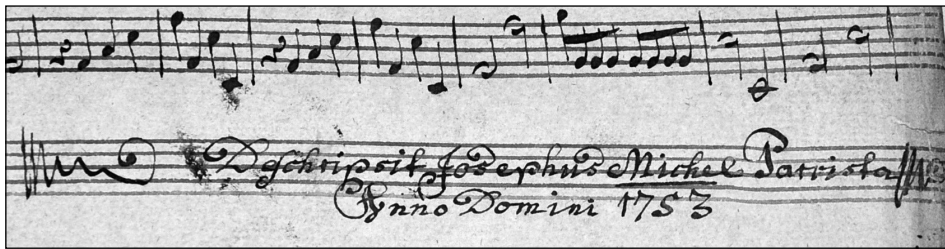 Deschripsit Josephus Michel Parrista
Anno Domini 1753